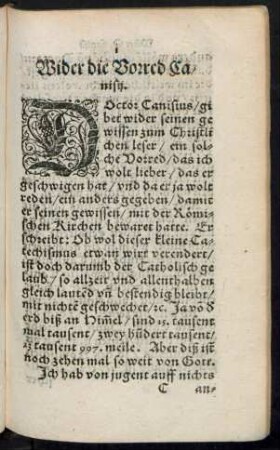 1
Wider die Vorred Ca-
nisij.
DOctor Canisius/ gi
bet wider seinen ge
wissen zum Christli
chen leser/ ein sol-
che Vorred/ das ich
wolt lieber/ das er
geschwigen hat/ vnd da er ja wolt
reden/ ein anders gegeben/ damit
er seinen gewissen/ mit der Römi-
schen Kirchen bewaret hatte. Er
schreibt: Ob wol dieser kleine Ca-
techismus etwan wirt verendert/
ist doch darumb der Catholisch ge
laub/ so allzeit vnd allenthalben
gleich lautẽd vñ bestendig bleibt/
mit nichte geschwechet/ꝛc. Ja võ d
erd biß an Him̃el/ sind 15. tausent
mal tausent/ zwey hũdert tausent/
tausent 997. meile. Aber diß ist
noch zehen mal so weit von Gott.
Ich hab von jugent auff nichts
C an-